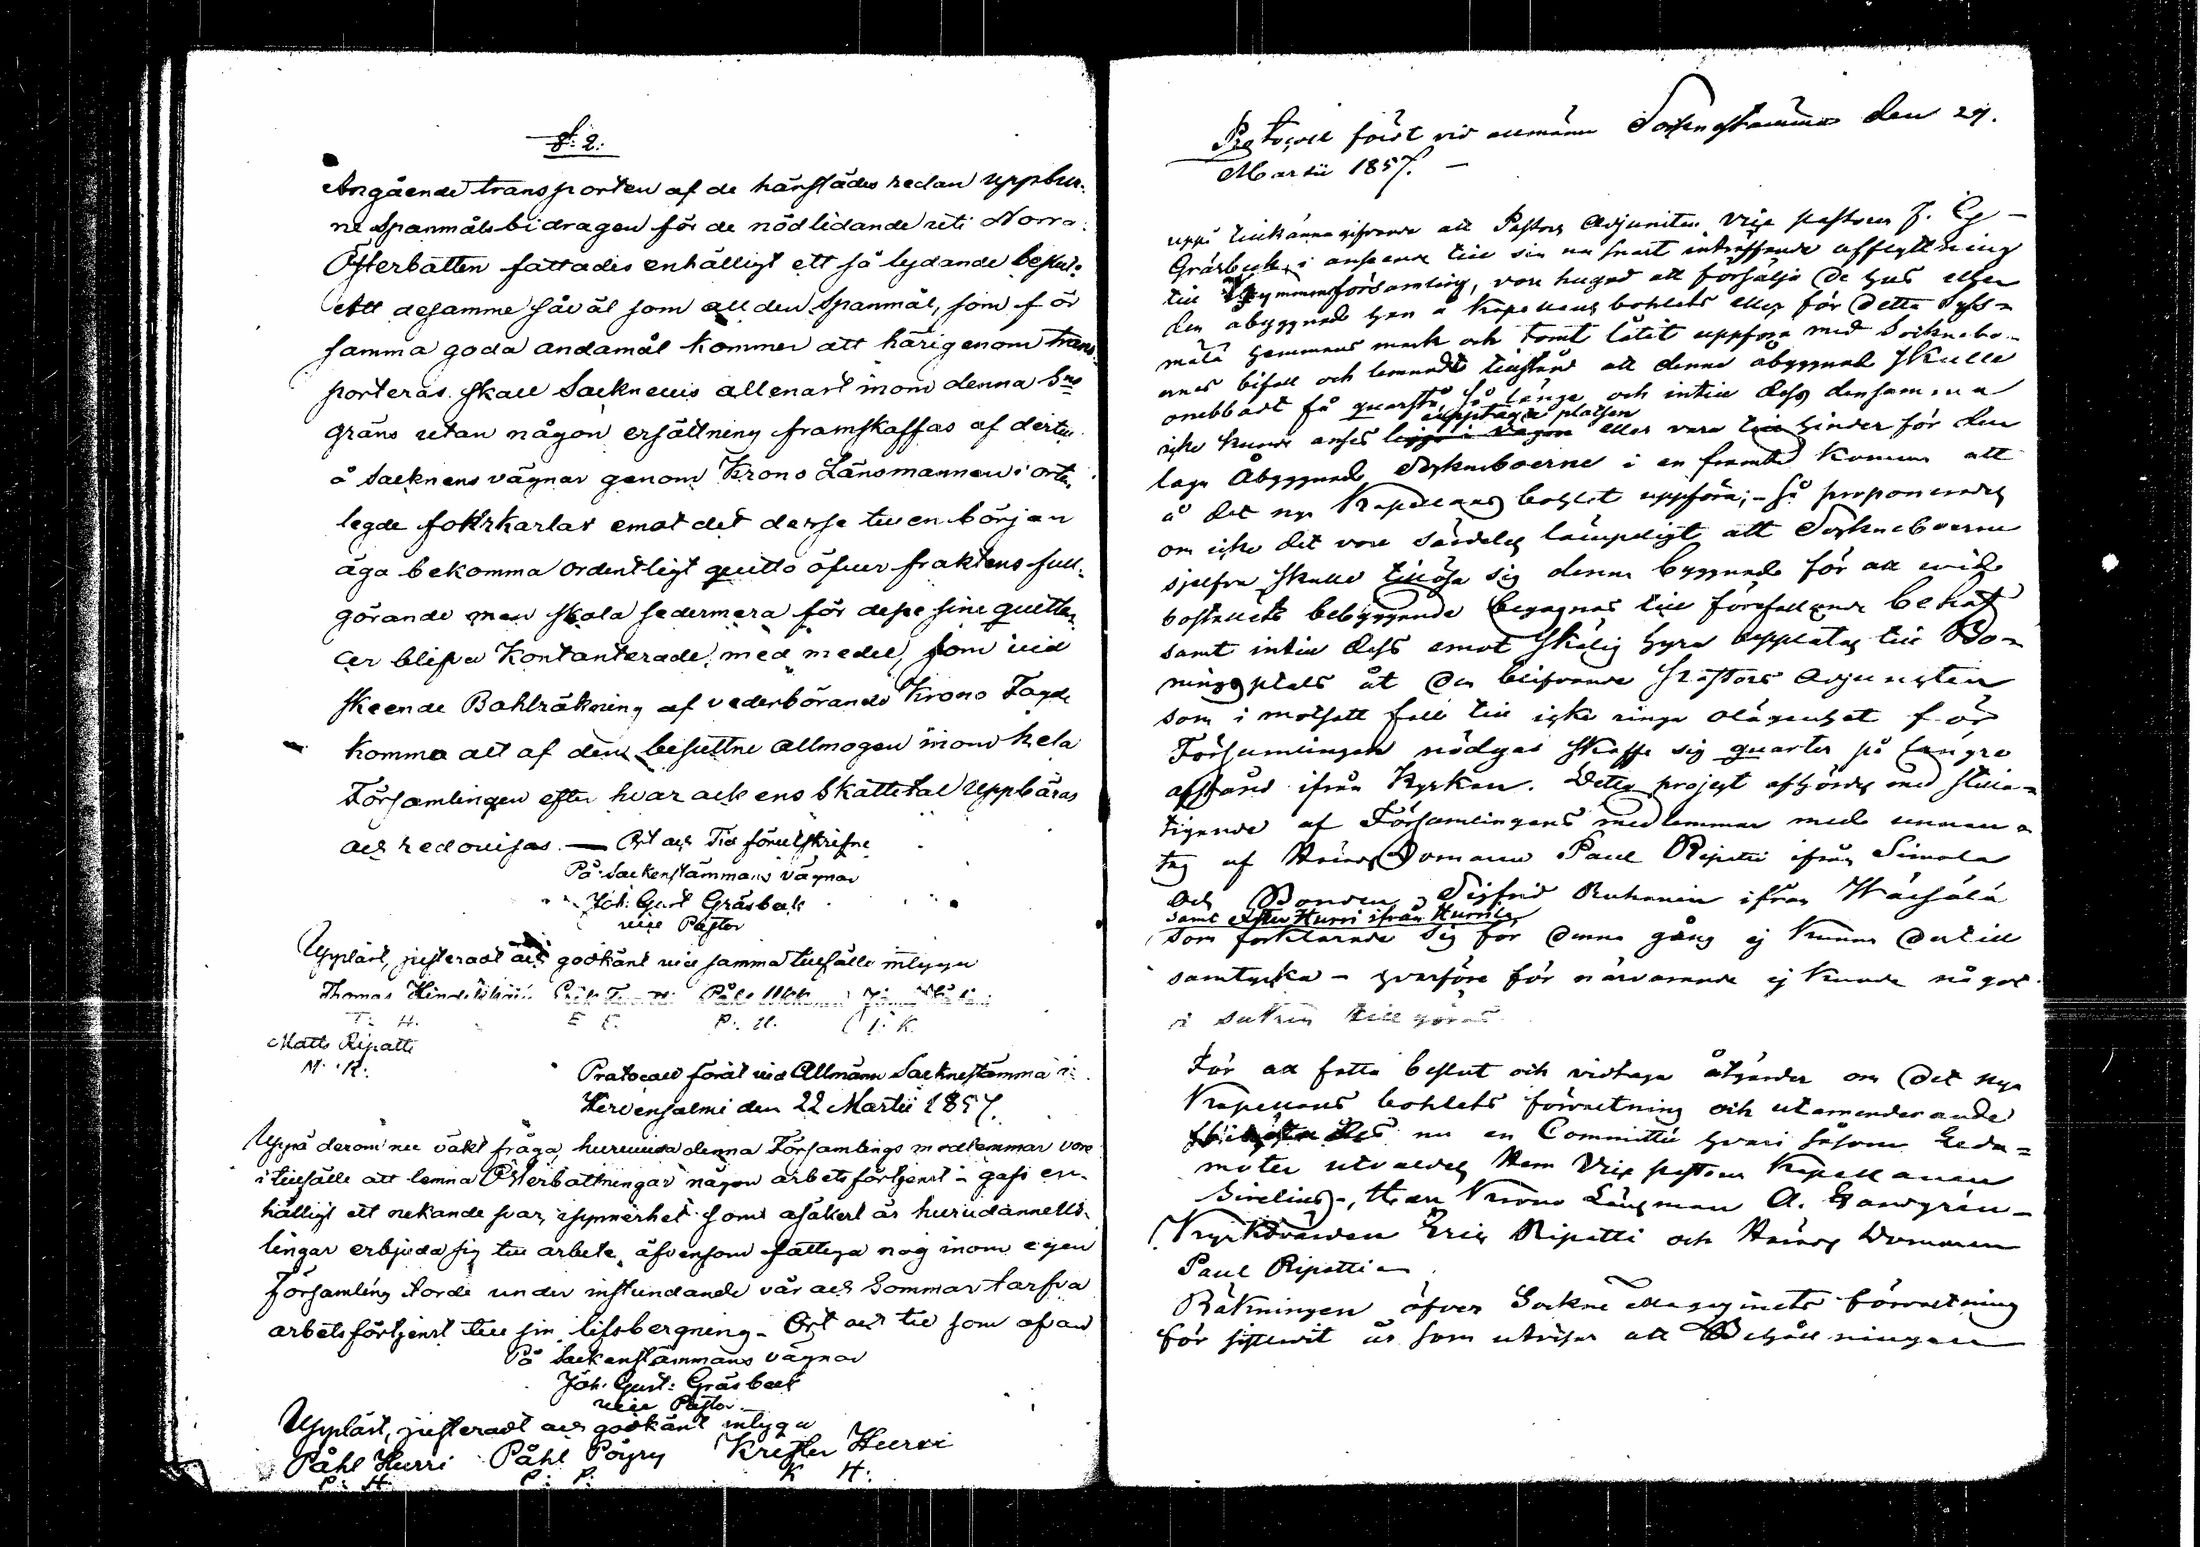 §: 2.
Angående transporten af de härstädes redan uppbur-
ne Spanmålsbidragen för de nödlidande uti Norra
Österbotten fattades enhälligt ett så lydande beslut:
Att desamme såväl som all den Spanmål, som för
samma goda andamål kommer att härigenom trans-
porteras skall Sacknevis allenast inom denna Sns
gräns utan någon ersättning framskaffas af dertill
å Sacknens vägnar genom Krono Länsmannen i orten
legde forkarlar emot det desse till en början
äga bekomma ordentligt quitto öfver fraktens full-
görande men skola sedermera för desse sine quitten-
cer blifva Kontanterade, med medel, som vid
skeende Bohlräkning af vederbörande Krono Fogde
komma att af den besuttne allmogen inom hela
Församlingen efter hvar och ens Skattetal uppbäras
och redovisas. — Ort och Tid förutskrifne
På Sockenstämmans vägnar
Joh: Gust Gräsbeck
vice Pastor
Uppläst, justeradt och godkänt vid samma tillfälle intyga
Thomas Påhl Ukkonen
T: H. E E. P: U. J: K.
Matts Ripatti
M: R:
Protocoll fördt vid Allmänn Sacknestämma i
Hirvensalmi den 22 Martii 1857.
Uppå derom nu väkt fråga, huruvida denna Församlings medlemmar vore
i tillfälle att lemna Österbottningar någon arbetsförtjenst – gafs en-
hälligt ett nekande svar, isynnerhet som osäkert är hurudanne
lingar erbjuda sig till arbete, äfvensom fattiga nog inom egen
Församling torde under instundande vår och Sommar tarfva
arbetsförtjenst till sin lifsbergning – Ort och tid som ofvan
På Sockenstämmans vägnar
Joh. Gust: Gräsbeck
vice Pastor
Uppläst, justeradt och godkänt intyga
Påhl Hurri Påhl Pöyry Krister Hurri
P: H. P: P: K H:
Protocoll fördt vid allmänn Sockenstämma den 29.
Martii 1857. —
uppå tillkännagifvande att Pastors Adjuncten Vice pastorn J. G
Gräsbeck, i anseende till sin nu snart inträffande afflyttning
till församling, vore hugad att försälja de hus eller
den åbyggnad han å Kapellans bohlets eller för detta
mälä hemmans mark och tomt låtit uppföra med Sockenbo-
ernes bifall och lemnadt tillstånd att denna åbyggnad skulle
orubbadt få quarstå, så länge och intill dess densamma
upptaga platsen
icke kunde anses ligga i vägen eller vara till hinder för den
laga Åbyggnad Sockneboerne i en framtid komma att
å det nya Kapellans bohlet uppföra; – så proponerades
om icke det vore särdeles lämpeligt att Socknboerne
sjelfva skulle tillösa sig denna byggnad för att vid
bostellets bebyggande begagnas till förefallande behof
samt intill dess emot skälig hyra upplåtas till Bo-
ningsplats åt den blifvande Pastors Adjuncten
som i motsatt fall till icke ringa olägenhet för
Församlingen nödgas skaffa sig quarter på längre
afstånd ifrån Kyrkan. Detta project afhördes med still-
tigande af Församlingens medlemmar med undan-
tag af Häradsdomaren Paul Ripatti ifrån Simola
och Bonden Sigfrid Ruhanen ifrån
samt Krister Hurri ifrån Hurrila
som förklarade sig för denna gång ej kunna dertill
samtycka – hvarföre för närvarande ej kunde något
i saken tillgöras
För att fatta beslut och vidtaga åtgärder om det nya
Kapellans bohlets förvaltning och utarrenderande
nu en Committé hvari såsom Leda-
möter utvaldes Herr Vice pastorn Kapellanen
Sirelius –, Herr Krono Länsman A. Sandgrén –
Kyrkovärden Eric Ripatti och Härads Domaren
Paul Ripatti –
Räkningen öfver Sockne Magazinets förvaltning
för sistledit år som utvisar att Behållningen